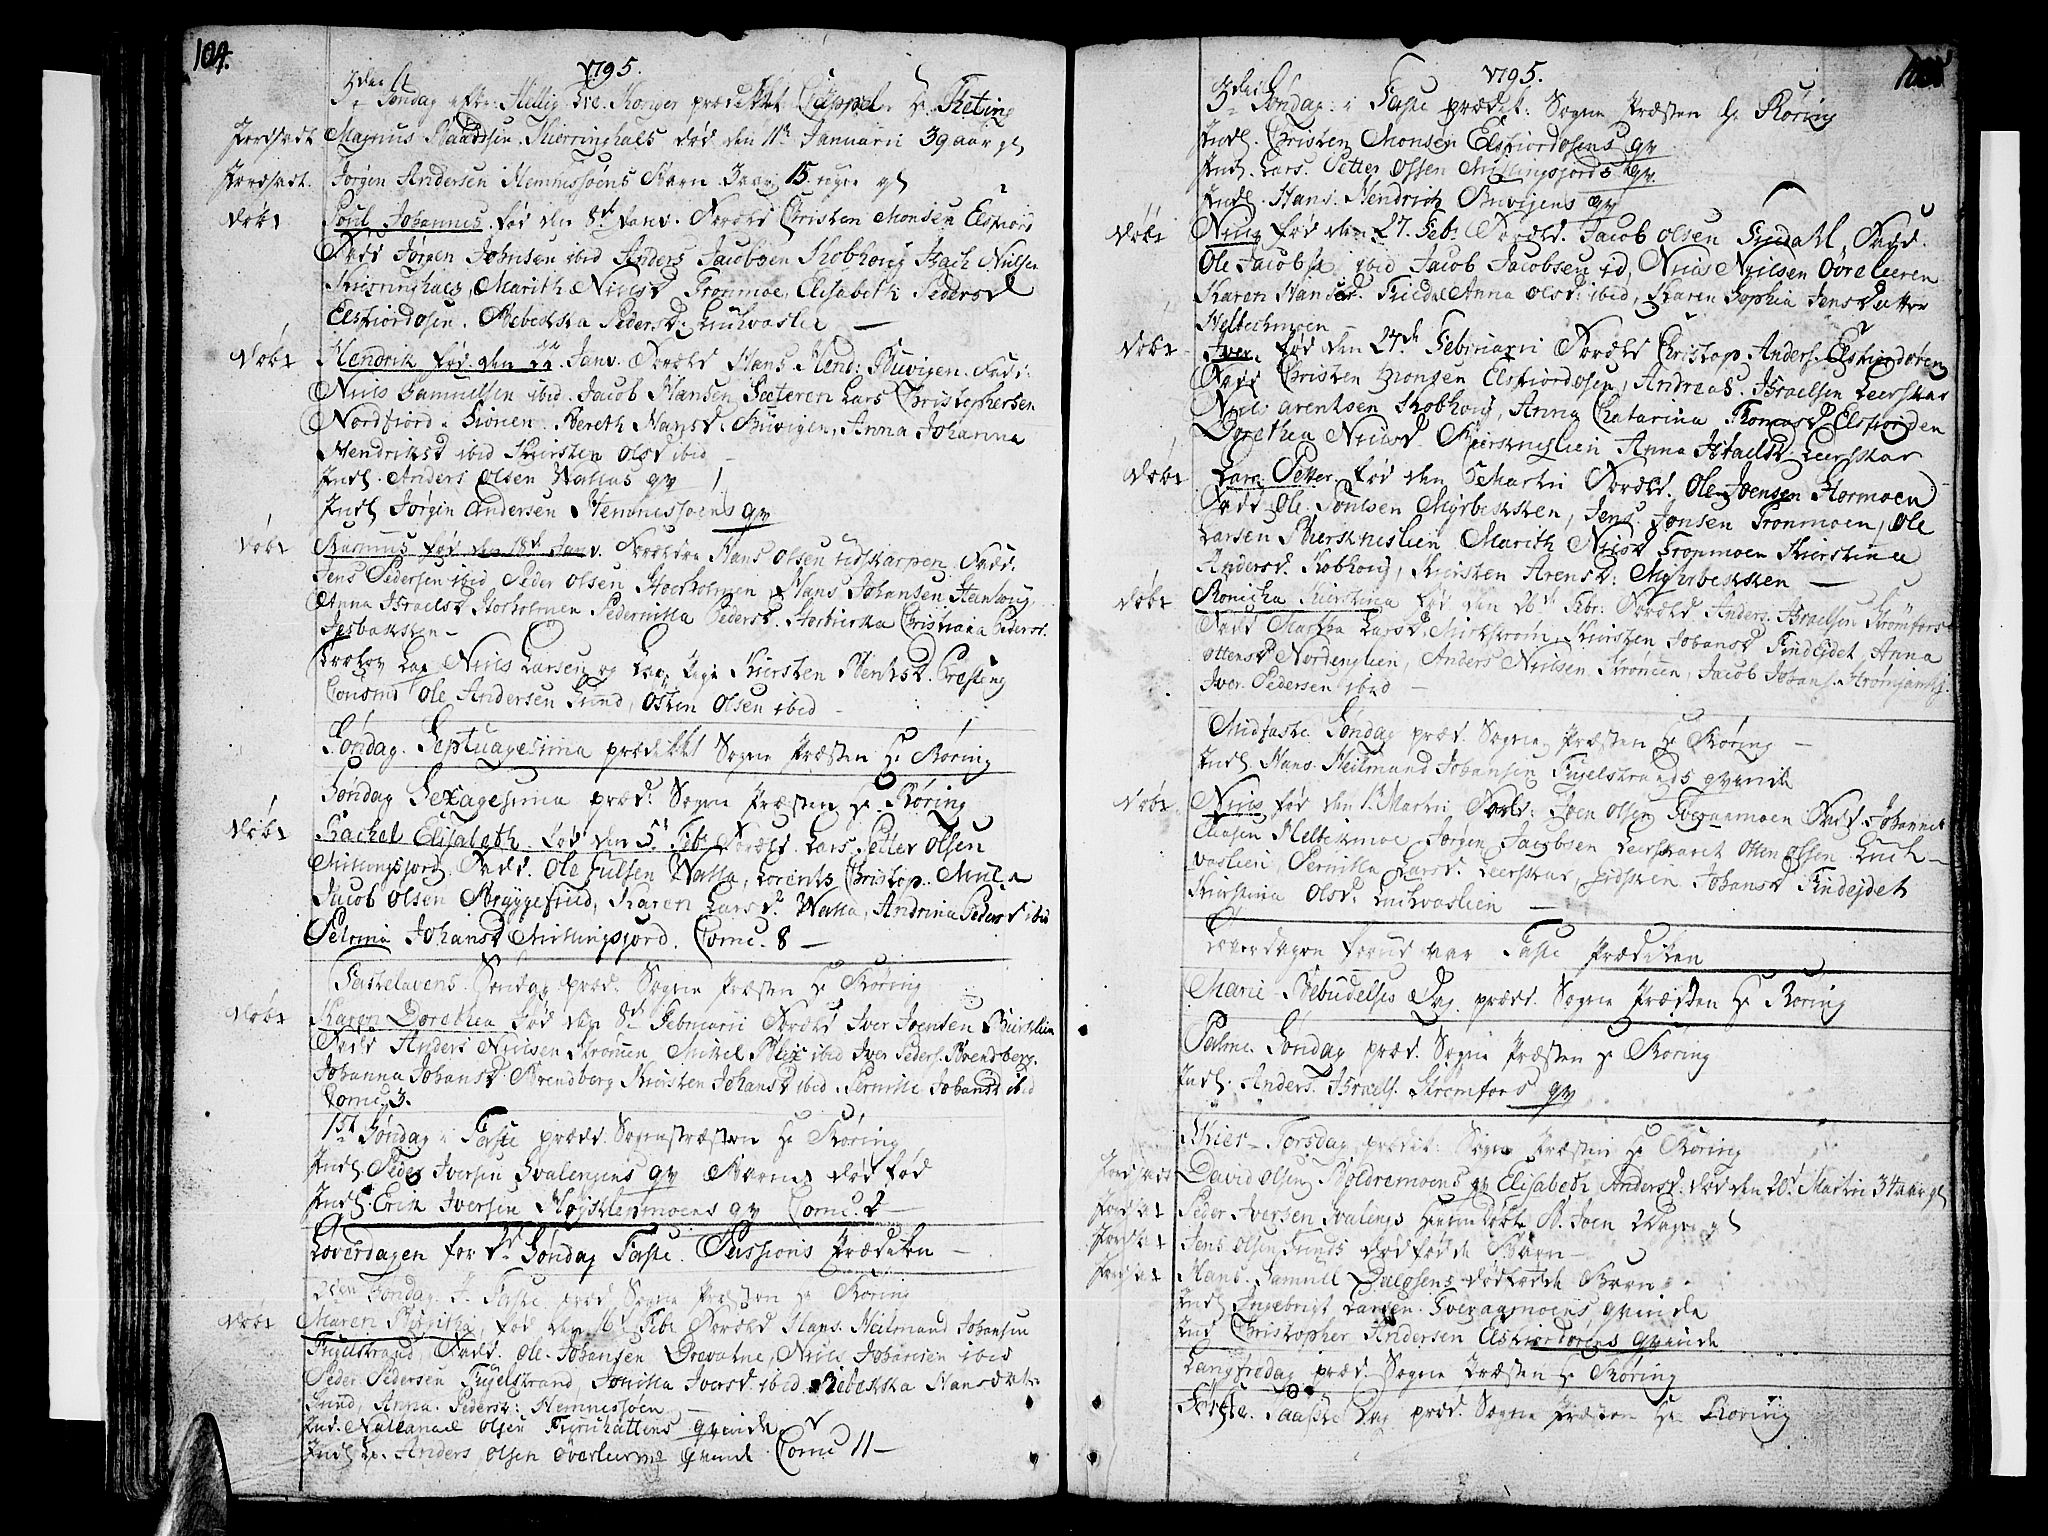 104.
1795.
3die Søndag efter Hellig Tre Konger prædikket Cappel. Hr Theting
Jordsadt Magnus Kierringhals død den 11te Januarii 39 aar gl
Jordsadt. Jørgen Andersen Hemnessøens Barn 3 aar 15 uger gl
Døbt Poul Johannes fød den 8de Janv. Foræld Christen Monsen Elsfiord
Fadd Jørgen Johnsen ibid Anders Jacobsen Kobhoug Isach Nielsen
Kierringhals, Marith Nielsd Fronmoe, Elisabeth Pedersd
Elsfiordosen. Rebekka Pedersd. Luchvaslie
Døbt Hendrik fød den 22 Janv. Foræld Hans Hend: Buvigen. Fadd.
Niels Samuelsen ibid. Jacob Hansen Sæteren Lars Christophersen
Nordfiord i Sionen Bereth Hansd. Buvigen, Anna Johanna
Hendriksd ibid Kiersten Olsd ibid
Indl. Anders Olsen Wallas qv
Indl Jørgen Andersen Hemnessøens qv
Døbt Rasmus fød den 18de Janv. Forældre Hans Olsen Udskarpen. Fadd.
Jens Pedersen ibid Peder Olsen Storholmen Hans Johansen Stenhoug
Anna Israelsd Storholmen Pedernilla Pedersd. Christiana Pedersd.
Isbakken
Trolov Niels Larsen og Kiersten Bentsd. Præsteng
Caut. Ole Andersen Sund, Osten Olsen ibid
Søndag Septuagesima prædikket Sogne Præsten Hr Røring
Søndag Sexagesima præd. Sogne Præsten Hr Røring
Døbt Rachel Elisabeth fød den 5te Feb. Foræld. Lars Petter Olsen
Millingsjord Fadd. Ole Julsen Walla, Lorents Christop. Mula
Jacob Olsen Bryggefield, Karen Larsd. Walla, Andrina Pedersd ibid
Pelrona Johansd Millingsjord. Comu. 8
Fastelavens Søndag præd. Sogne Præsten Hr Røring
Døbt Karen Dorethea fød den 8de Februarii Foræld Iver Joensen Bierklien
Fadd Anders Nielsen Kronen Mikkel Blix ibid Iver Peders. Brendberg.
Johanna Johansd Brendberg Kiersten Johansd ibid Pernille Johansd ibid
Comu. 3.
1ste Søndag i Faste prædd. Sognepræsten Hr Røring
Indl Peder Iversen Svalengens qv Barnet død fød
Indl. Erik Iversen Møysklenmoens qv Comu. 2
Løverdagen for 2d Søndag Faste. Passions Prædiken
2den Søndag I Faste præd Sogne Præsten Hr Røring
Døbt Maren Birgitha, fød den 16de Feb. Foræld Hans Heilmand Johansen
Fugelstrand, Fadd. Ole Johansen Drevatne, Niels Johansen ibid
Peder Pedersen Fugelstrand, Jonilla Iversd ibid Rebekka Hansdatter
Sund, Anna Pedersd: Hemnessøen
Ind. Nathanael Olsen qvinde
Indl. Anders Olsen Øverleirens qvinde Comu 11
1795.
3die Søndag i Faste prædik: Sogne Præsten Hr Røring
Indl. Christen Monsen Elsfiordosens qv
Ind. Lars Petter Olsen Millingsjords qv.
Indl. Hans Hendrich Buvigens qv
Døbt Niels fød den 27. Feb. Foræld. Jacob Olsen Fieldahl, Fadd.
Ole Jacobsen ibid Jacob Jacobsen id, Niels Nielsen Øvreleeren
Karen Hansd. Fieldal Anna Olsd: ibid, Karen Sophia Jensdatter
Helbechmoen
Døbt Iver. fød den 24de Februarii Foræld Christop. Anders. Elsfiordosen
Fadd Christen Monsen Elsfiordosen, Andreas Israelsen Leerskar
Niels Arentsen Kobhoug, Anna Chatarina Thomasd Elsfiorden
Dorethea Nielsd Bierkneslien Anna Israelsd Leerskar
Døbt Lars Petter fød den 5 Martii Foræld. Ole Joensen Stormoen
Fadd Ole Poulsen Myrbekken, Jens Jonsen Fronmoen, Ole
Larsen Bierkneslien Marith Nielsd Fronmoen Kierstina
Andersd. Kobhoug, Kiersten Arensd: Myhrbekken
Døbt Ronicka Kierstina fød den 26de Febr: Foræld Anders Israelsen Strømfors
Fadd Martha Larsd. Kiersten Johansd Findejdet Anna
Ottensd Nordenglien, Anders Nielsen Kronen, Jacob Johans.
Iver Pedersen ibid
Midfaste Søndag præd. Sogne Præsten Hr Røring
Indl. Hans Heilmand Johansen Fugelstrands qvinde
Døbt Niels fød den 1te Martii Foræld: Joen Olsen Tveraamoen Fadd Johannes
Helbekmoe Jørgen Jacobsen Leerskaret Otten Olsen Luck-
vaslien, Pernilla Larsd. Leerskar, Sidsken Johansd Findejdet
Kierstina Olsd: Luckvaslien
Løverdagen forud var Faste Prædiken
Marie Bebudelses Dag prædd. Sogne Præsten Hr Røring
Palme Søndag præd. Sogne Præsten Hr Røring
Indl. Anders Israels. Strømfors qv
Skier-Torsdag prædik: Sogne Præsten Hr Røring
Jordsadt David Olsens Boldremoens qv Elisabeth Andersd: død den 20de Martii 34 aar gl
Jordsat Peder Iversen Svalengs hiemmedøbte B. Joen 2 Dage gl
Jordsat Jens Olsen Sunds dødfødde Barn
Jordsat Hans Samuel Dalosens dødfødde Barn
Indl. Ingebrigt Larsen Tveraamoens qvinde
Ind. Christopher Andersen Elsfiordosens qvinde
Langfredag præd. Sogne Præsten Hr Røring
Første Paaske Dag præd. Sogne Præsten Hr Røring